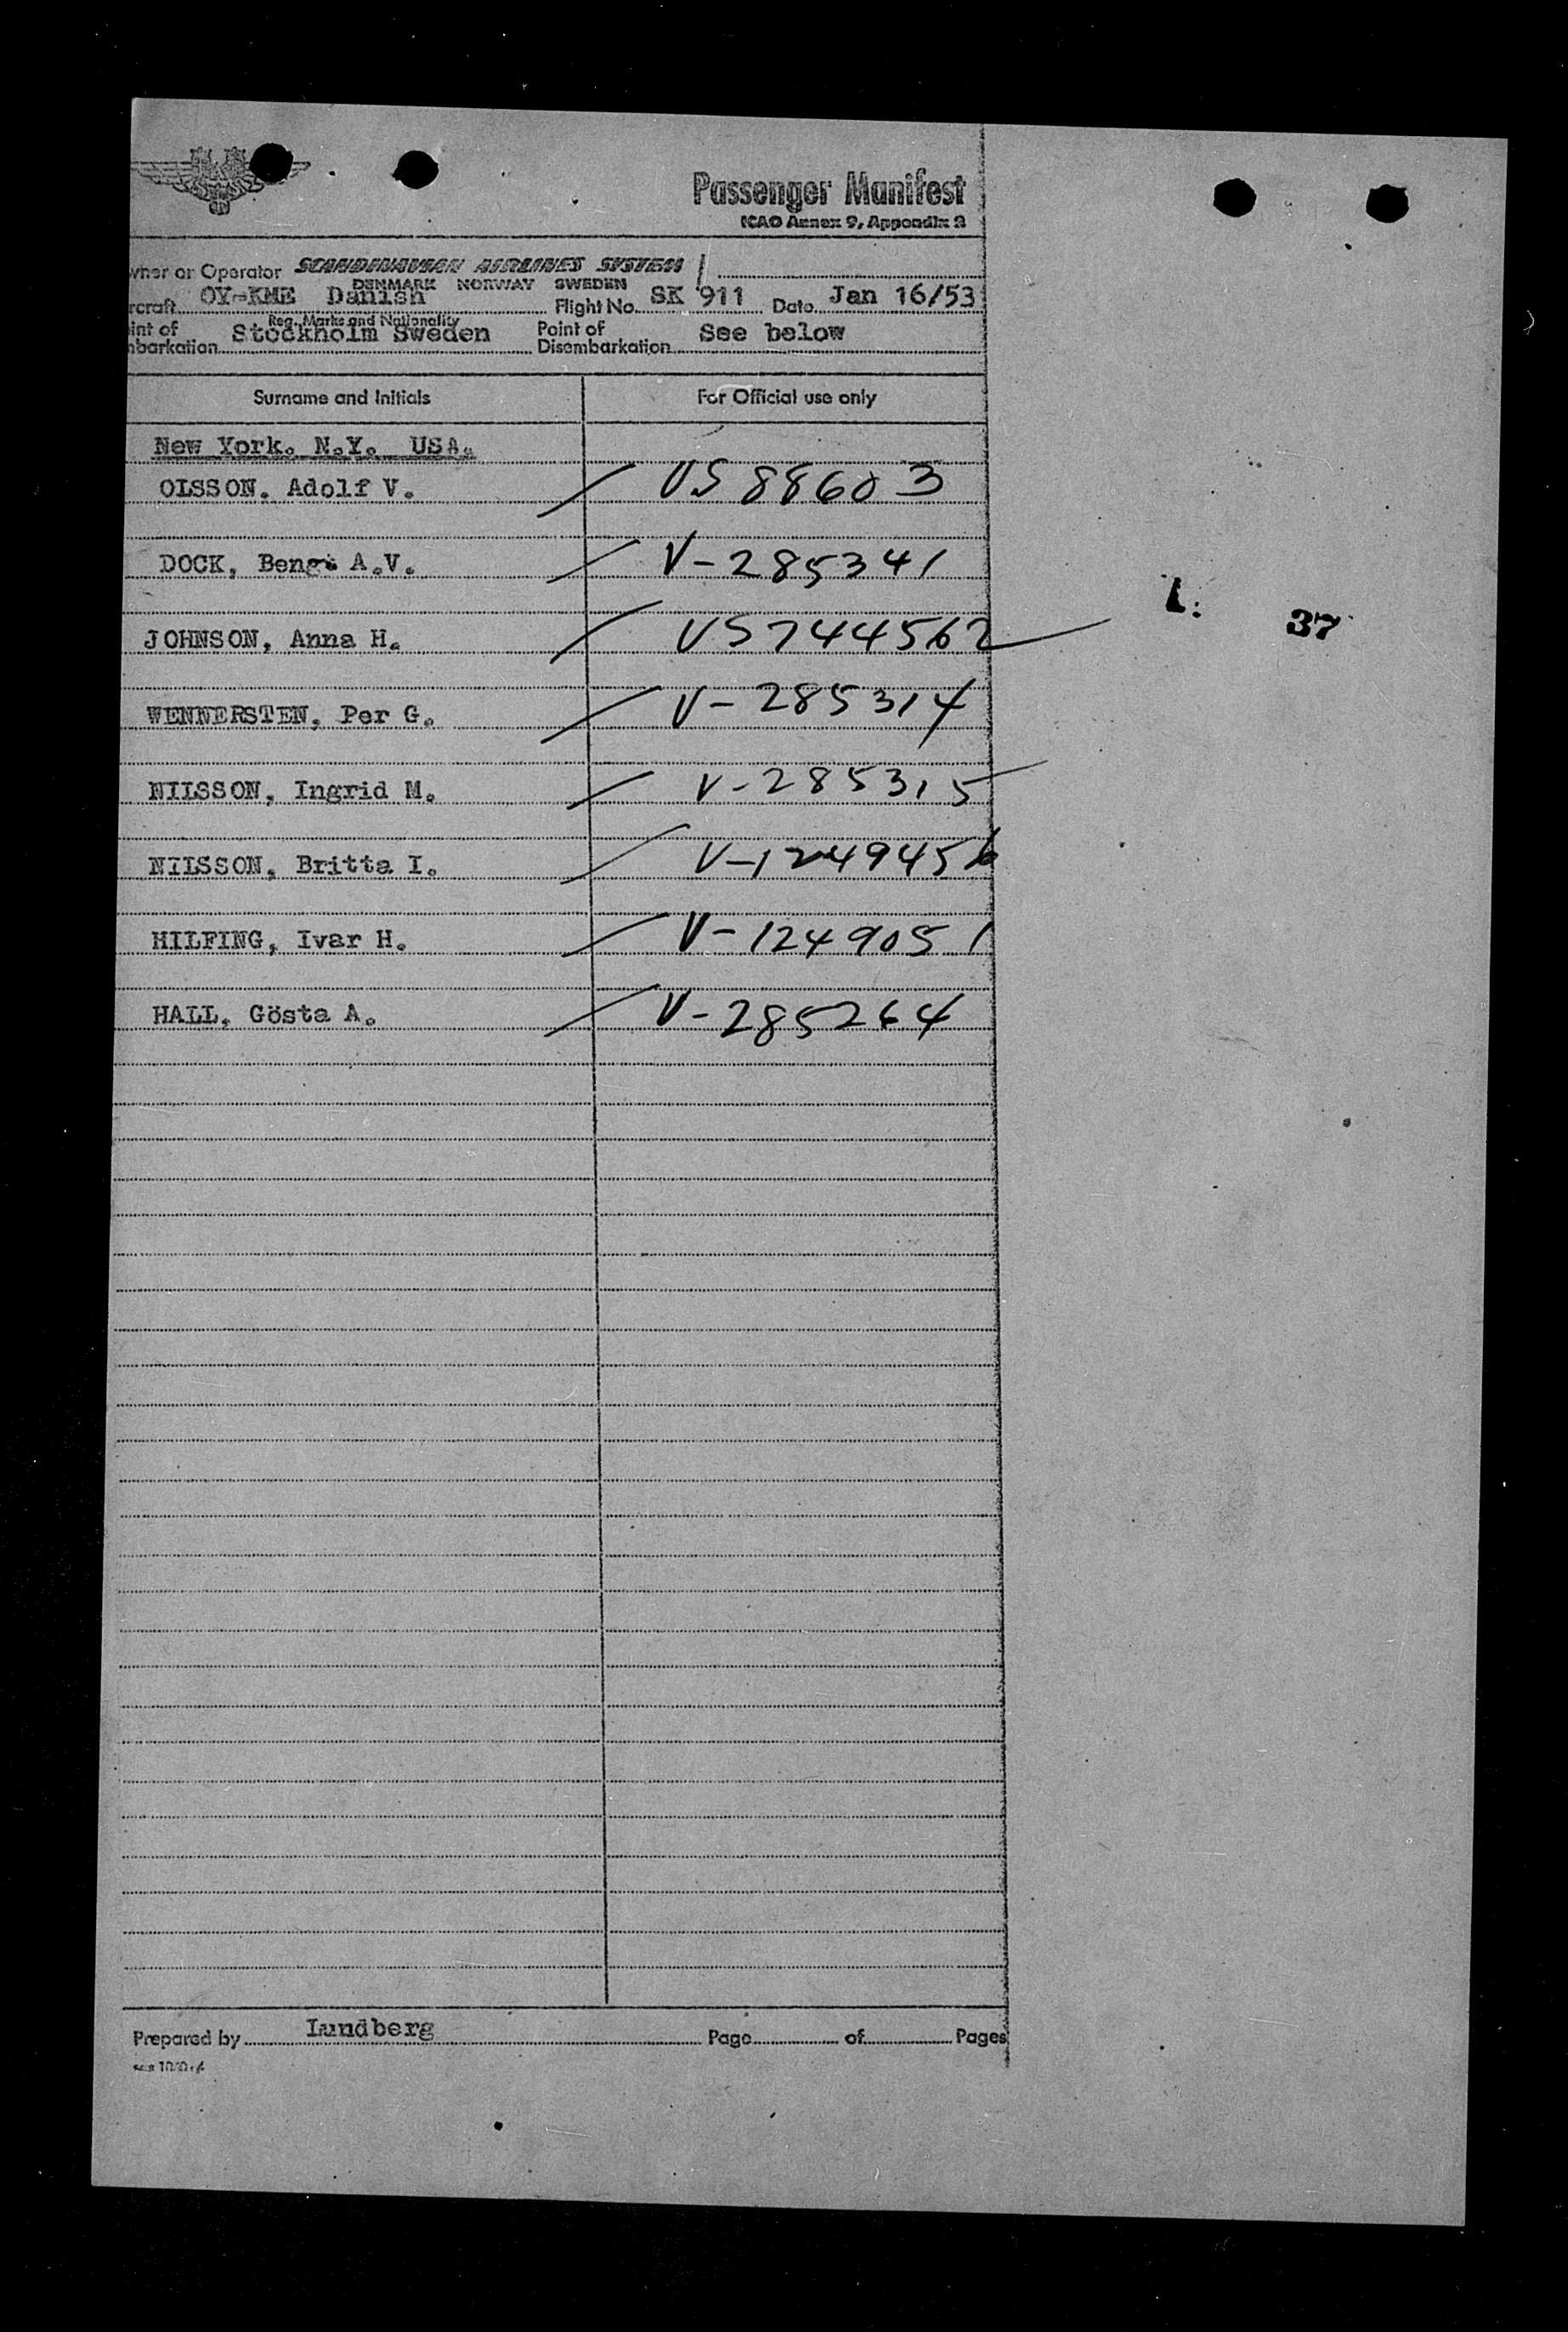 Passenger Manifest
ICAO Annex 9, Appendix 3
wner or Operator SCANDINAVIAN AIRLINES SYSTEM
DENMARK NORWAY SWEDEN
rcraft OY-KME Danish Flight No. SK 911 Date Jan 16/53
Reg. Marks and Nationality
int of Stockholm Sweden Point of See below
nbarkation Disembarkation
Surname and Initials For Official use only
New York. N.Y. USA.
OLSSON. Adolf V. VS 88603
DOCK, Bengt A.V. V-285341
JOHNSON, Anna H. US744562
WENNERSTEN, Per G. V-285314
NILSSON, Ingrid M. V-285315
NILSSON, Britta I. V-1249456
HILFING, Ivar H. V-1249051
HALL, Gösta A. V-285264
1. 37
Prepared by Lundberg Page of Pages